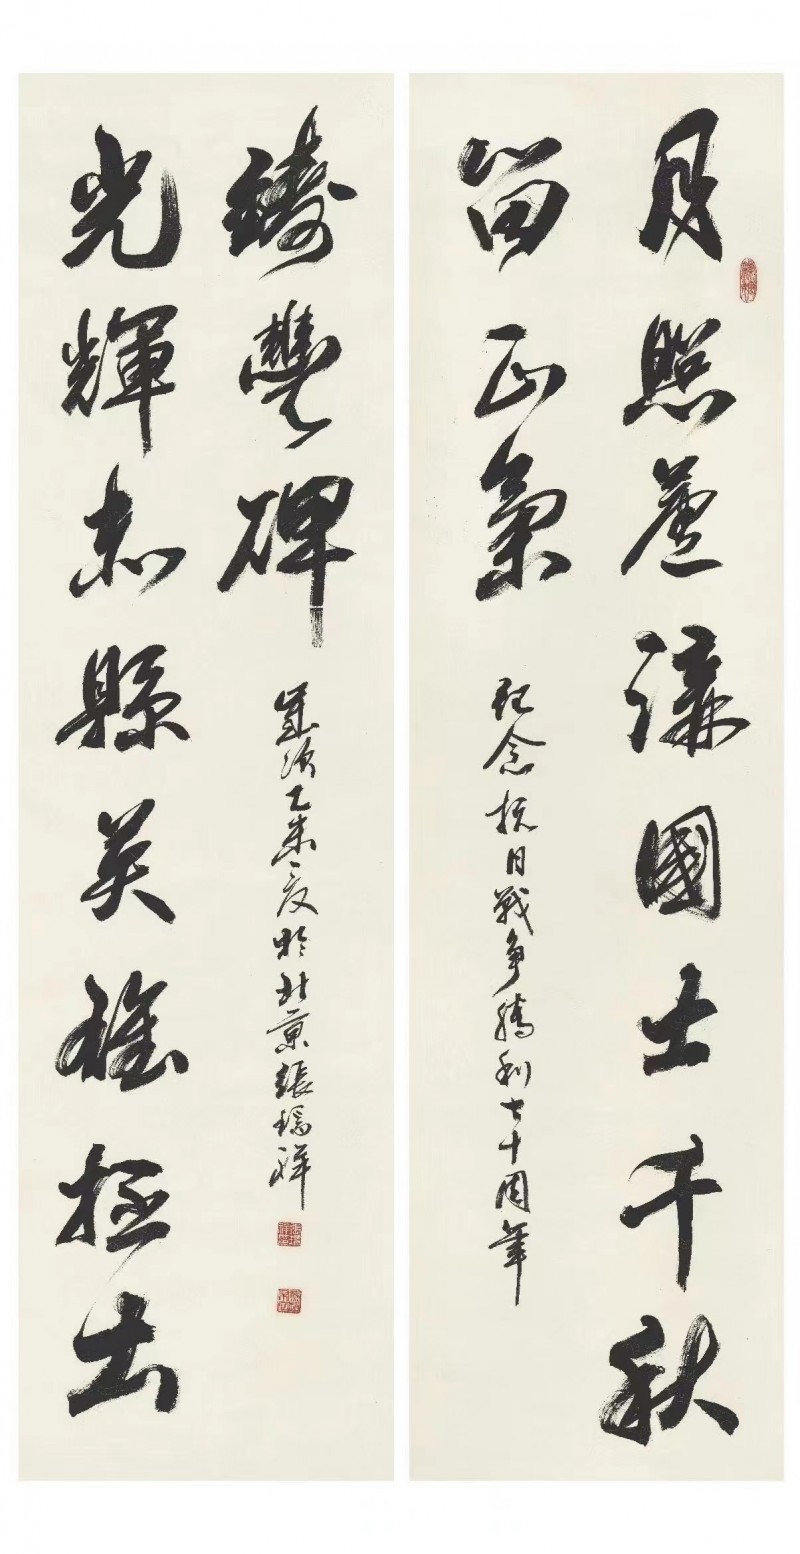 月照蘆溝國士千秋
留正氣
紀念抗日戰爭勝利七十周年
光輝赤縣英雄
鑄豐碑
歲次乙未之夏於北京張瑞祥